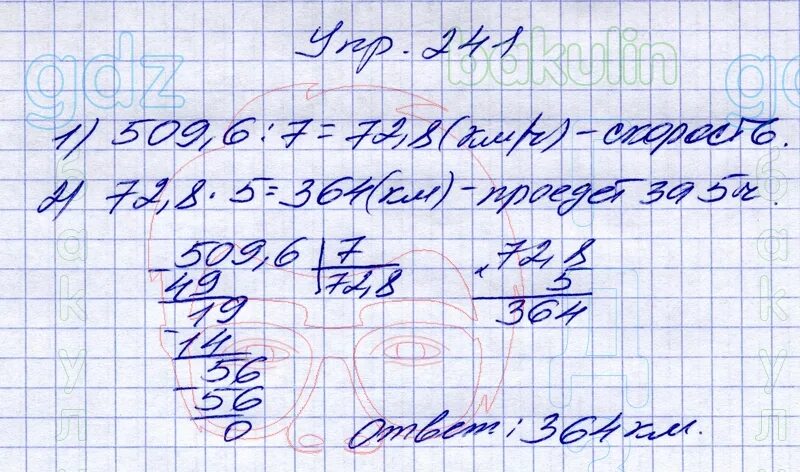 Упр. 241
gdz
bakulin
1) 509,6 : 7 = 72,8 (км/ч) - скорость.
2) 72,8 · 5 = 364 (км) - проедет за 5 ч.
- 509,6 | 7
49 | 72,8
19
- 14
56
- 56
0
× 72,8
5
364
Ответ: 364 км.